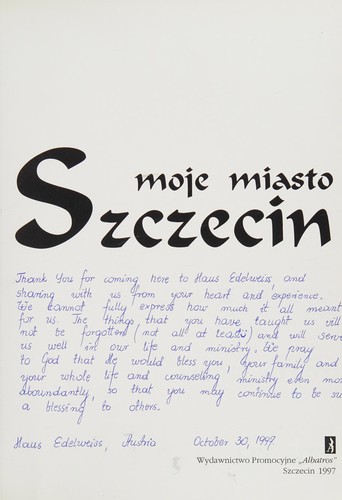 moje miasto
Szczecin
Thank You for coming here to Haus Edelweiss, and
sharing with us from your heart and experience.
We cannot fully express how much it all meant
for us. The things that you have taught us will
not be forgotten (not all at least) and will serve
us well in our life and ministry. We pray
to God that He would bless you, your family and
your whole life and counseling ministry even more
abundantly, so that you may continue to be such
a blessing to others.
Haus Edelweiss, Austria October 30, 1997
Wydawnictwo Promocyjne „Albatros”
Szczecin 1997